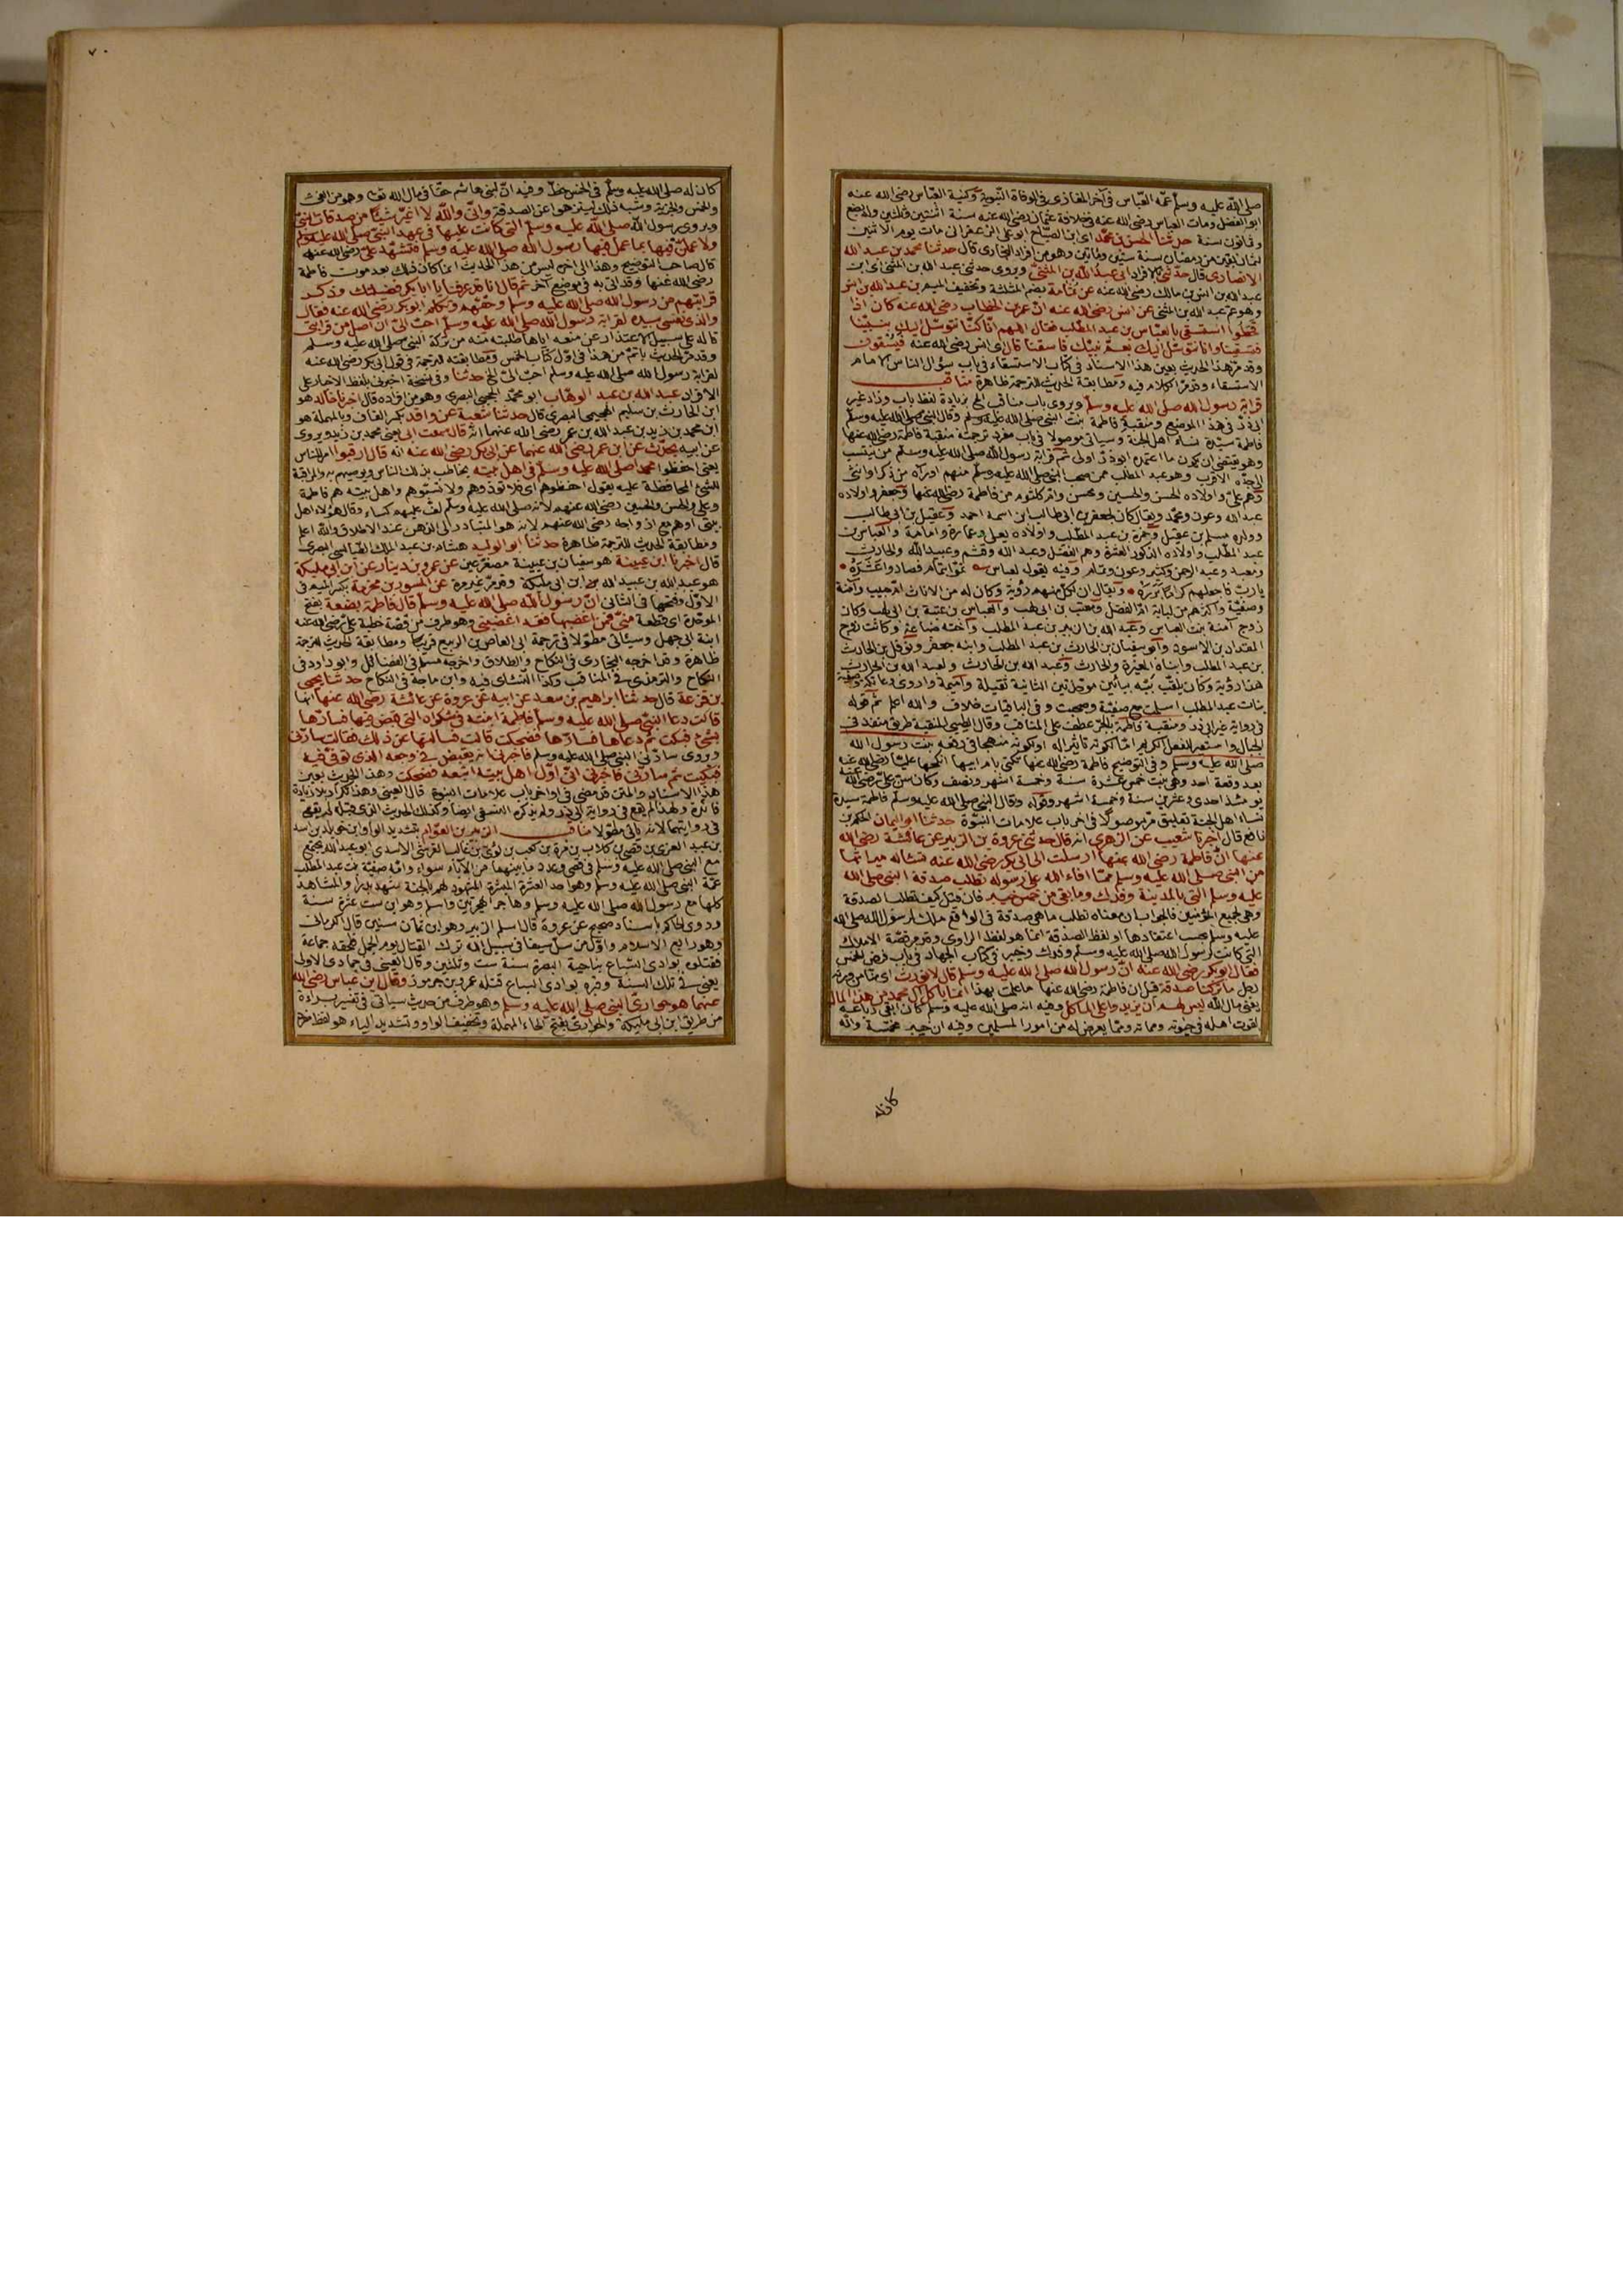 صلى الله عليه وسلم عمه العباس في آخر المغازي في الوفاة النبوية وكنية العباس رضي الله عنه
ابو الفضل ومات العباس رضي الله عنه في خلافة عثمان رضي الله عنه سنة اثنتين وثلثين وله بضع
وثمانون سنة حدثنا الحسن بن محمد اي ابن الصباح ابو علي الزعفراني مات يوم الاثنين
لثمان بقين من رمضان سنة ستين ومائتين وهو من افراد البخاري قال حدثنا محمد بن عبد الله
الانصاري قال حدثني بالافراد ابي عبد الله بن المثنى ويروى حدثني عبد الله بن المثنى اي ابن
عبد الله بن انس بن مالك رضي الله عنه عن ثمامة بضم المثلثة وتخفيف الميم بن عبد الله بن انس
وهو عم عبد الله بن المثنى عن انس رضي الله عنه ان عمر بن الخطاب رضي الله عنه كان اذا
قحطوا استسقى بالعباس بن عبد المطلب فقال اللهم انا كنا نتوسل اليك بنبينا
فتسقينا وانا نتوسل اليك بعم نبيك فاسقنا قال اي انس رضي الله عنه فيسقون
وقد مر هذا الحديث بعين هذا الاسناد في كتاب الاستسقاء في باب سؤال الناس الامام
الاستسقاء وقد مر الكلام فيه ومطابقة الحديث للترجمة ظاهرة مناقب
قرابة رسول الله صلى الله عليه وسلم ويروى باب مناقب الخ بزيادة لفظ باب وزاد غير
ابي ذر في هذا الموضع ومنقبة فاطمة بنت النبي صلى الله عليه وسلم وقال النبي صلى الله عليه وسلم
فاطمة سيدة نساء اهل الجنة وسيأتي موصولا في باب مفرد ترجمته منقبة فاطمة رضي الله عنها
وهو يقتضي ان يكون ما اعتمده ابو ذر اولى ثم قرابة رسول الله صلى الله عليه وسلم من ينتسب
لجده الاقرب وهو عبد المطلب ممن صحب النبي صلى الله عليه وسلم منهم او رآه من ذكر او انثى
وهم علي واولاده الحسن والحسين ومحسن وام كلثوم من فاطمة رضي الله عنها وجعفر واولاده
عبد الله وعون ومحمد ويقال كان لجعفر بن ابي طالب ابن اسمه احمد وعقيل بن ابي طالب
وولده مسلم بن عقيل وحمزة بن عبد المطلب واولاده يعلى وعمارة وامامة والعباس بن
عبد المطلب واولاده الذكور العشرة وهم الفضل وعبد الله وقثم وعبيد الله والحارث
ومعبد وعبد الرحمن وكثير وعون وتمام وفيه يقول العباس تموا بتمام فصاروا عشره
يا رب فاجعلهم كراما برره ويقال ان لكل منهم رؤية وكان له من الاناث ام حبيب وآمنة
وصفية واكثرهم من لبابة ام الفضل ومعتب بن ابي لهب والعباس بن عتبة بن ابي لهب وكان
زوج آمنة بنت العباس وعبد الله بن الزبير بن عبد المطلب واخته ضباعة وكانت زوج
المقداد بن الاسود وابو سفيان بن الحارث بن عبد المطلب وابنه جعفر ونوفل بن الحارث
بن عبد المطلب وابناه المغيرة والحارث وعبد الله بن الحارث ولعبد الله بن الحارث
هذا رؤية وكان يلقب ببه ببائين موحدتين الثانية ثقيلة واميمة واروى وعاتكة وصفية
بنات عبد المطلب اسلمت مع صفية وصحبت وفي الباقيات خلاف والله اعلم ثم قوله
في رواية غير ابي ذر ومنقبة فاطمة بالجر عطف على المناقب وقال الطيبي المنقبة طريق منفذ في
الجبال واستعير للفعل الكريم اما لكونه تاثيرا له او لكونه منهجا في رفعه بنت رسول الله
صلى الله عليه وسلم وفي التوضيح فاطمة رضي الله عنها تكنى بام ابيها انكحها عليا رضي الله عنه
بعد وقعة احد وهي بنت خمس عشرة سنة وخمسة اشهر ونصف وكان سن علي رضي الله عنه
يومئذ احدى وعشرين سنة وخمسة اشهر وقوله وقال النبي صلى الله عليه وسلم فاطمة سيدة
نساء اهل الجنة تعليق مر موصولا في اخر باب علامات النبوة حدثنا ابو اليمان الحكم بن
نافع قال اخبرنا شعيب عن الزهري انه قال حدثني عروة بن الزبير عن عائشة رضي الله
عنها ان فاطمة رضي الله عنها ارسلت الى ابي بكر رضي الله عنه تسأله ميراثها
من النبي صلى الله عليه وسلم مما افاء الله على رسوله تطلب صدقة النبي صلى الله
عليه وسلم التي بالمدينة وفدك وما بقي من خمس خيبر فان قيل كيف تطلب الصدقة
وهي لجميع المؤمنين فالجواب ان معناه تطلب ما هي صدقة في الواقع ملك لرسول الله صلى الله
عليه وسلم بحسب اعتقادها او لفظ الصدقة انما هو لفظ الراوي وقد مر قصة الاملاك
التي كانت لرسول الله صلى الله عليه وسلم وفدك وخيبر في كتاب الجهاد في باب فرض الخمس
فقال ابو بكر رضي الله عنه ان رسول الله صلى الله عليه وسلم قال لا نورث اي متا من ورثه
رجل ما تركنا صدقة قيل ان فاطمة رضي الله عنها ما علمت بهذا انما يأكل آل محمد من هذا المال
يعني مال الله ليس لهم ان يزيدوا على المأكل وفيه انه صلى الله عليه وسلم كان ابقى رباعه
لقوت اهله في حيوته ومماته ومما يعرض له من امور المسلمين وفيه ان خيبر خمست وانه
كان له
٧٠
كان له صلى الله عليه وسلم في الخمس حظ وفيه ان لبني هاشم حقا في مال الله تعالى وهو من الفيء
والخمس والجزية وشبه ذلك ليتنزهوا عن الصدقة واني والله لا اغير شيئا من صدقات النبي
ويروى رسول الله صلى الله عليه وسلم التي كانت عليها في عهد النبي صلى الله عليه وسلم
ولاعملن فيها بما عمل فيها رسول الله صلى الله عليه وسلم فتشهد علي رضي الله عنه
قال صاحب التوضيح وهذا الى اخره ليس من هذا الحديث انما كان ذلك بعد موت فاطمة
رضي الله عنها وقد اتى به في موضع آخر ثم قال انا قد عرفنا يا ابا بكر فضيلتك وذكر
قرابتهم من رسول الله صلى الله عليه وسلم وحقهم وتكلم ابو بكر رضي الله عنه فقال
والذي نفسي بيده لقرابة رسول الله صلى الله عليه وسلم احب الي ان اصل من قرابتي
قاله على سبيل الاعتذار عن منعه اياها ما طلبته منه من تركة النبي صلى الله عليه وسلم
وقد مر الحديث باتم من هذا في اول كتاب الخمس ومطابقته للترجمة في قول ابي بكر رضي الله عنه
لقرابة رسول الله صلى الله عليه وسلم احب الي الخ حدثنا وفي نسخة اخبرني بلفظ الاخبار على
الافراد عبد الله بن عبد الوهاب ابو محمد الحجبي البصري وهو من افراده قال اخبرنا خالد هو
ابن الحارث بن سليم الهجيمي البصري قال حدثنا شعبة عن واقد بكسر القاف وبالمهملة هو
ابن محمد بن زيد بن عبد الله بن عمر رضي الله عنهما انه قال سمعت ابي يعني محمد بن زيد ويروى
عن ابيه يحدث عن ابن عمر رضي الله عنهما عن ابي بكر رضي الله عنه انه قال ارقبوا امر للناس
يعني احفظوا محمدا صلى الله عليه وسلم في اهل بيته يخاطب بذلك الناس ويوصيهم به والمراقبة
للشيء المحافظة عليه يقول احفظوهم اي فلا تؤذوهم ولا تسبوهم واهل بيته هم فاطمة
وعلي والحسن والحسين رضي الله عنهم لانه صلى الله عليه وسلم لف عليهم كساء وقال هؤلاء اهل
بيتي او هم مع ازواجه رضي الله عنهم لانه هو المتبادر الى الذهن عند الاطلاق والله اعلم
ومطابقة الحديث للترجمة ظاهرة حدثنا ابو الوليد هشام بن عبد الملك الطيالسي البصري
قال اخبرنا ابن عيينة هو سفيان بن عيينة مصغرعين عن عمرو بن دينار عن ابن ابي مليكة
هو عبد الله بن عبيد الله بن ابي مليكة وقد مر غير مرة عن المسور بن مخرمة بكسر الميم في
الاول وفتحها في الثاني ان رسول الله صلى الله عليه وسلم قال فاطمة بضعة بفتح
الموحدة اي قطعة مني فمن اغضبها فقد اغضبني وهو طرف من قصة خطبة علي رضي الله عنه
ابنة ابي جهل وسيأتي مطولا في ترجمة ابي العاص بن الربيع قريبا ومطابقة الحديث للترجمة
ظاهرة وقد اخرجه البخاري في النكاح والطلاق واخرجه مسلم في الفضائل وابو داود في
النكاح والترمذي في المناقب وكذا النسائي فيه وابن ماجة في النكاح حدثنا يحيى
بن قزعة قال حدثنا ابراهيم بن سعد عن ابيه عن عروة عن عائشة رضي الله عنها انها
قالت دعا النبي صلى الله عليه وسلم فاطمة ابنته في شكواه التي قبض فيها فسارها
بشيء فبكت ثم دعاها فسارها فضحكت قالت فسألتها عن ذلك فقالت سارني
ويروى سارني النبي صلى الله عليه وسلم فاخبرني انه يقبض في وجعه الذي توفي فيه
فبكيت ثم سارني فاخبرني اني اول اهل بيته اتبعه فضحكت وهذا الحديث بعين
هذا الاسناد والمتن قد مضى في اواخر باب علامات النبوة قال العيني وهذا تكرار بلا زيادة
فائدة ولهذا لم يقع في رواية ابي ذر ولم يذكره النسفي ايضا وكذلك الحديث الذي قبله لم يقع
في روايتهما لانه يأتي مطولا مناقب الزبير بن العوام بتشديد الواو ابن خويلد بن اسد
بن عبد العزى بن قصي بن كلاب بن مرة بن كعب بن لؤي بن غالب القرشي الاسدي ابو عبد الله يجتمع
مع النبي صلى الله عليه وسلم في قصي وعدد ما بينهما من الآباء سواء وامه صفية بنت عبد المطلب
عمة النبي صلى الله عليه وسلم وهو احد العشرة المبشرة المشهود لهم بالجنة شهد بدرا والمشاهد
كلها مع رسول الله صلى الله عليه وسلم وهاجر الهجرتين واسلم وهو ابن ست عشرة سنة
وروى الحاكم باسناد صحيح عن عروة قال اسلم الزبير وهو ابن ثمان سنين قال الكرماني
وهو رابع الاسلام واول من سل سيفا في سبيل الله ترك القتال يوم الجمل فلحقه جماعة
فقتلوه بوادي السباع بناحية البصرة سنة ست وثلثين وقال العيني في جمادى الاولى
يعني في تلك السنة وقبره بوادي السباع قتله عمرو بن جرموز وقال ابن عباس رضي الله
عنهما هو حواري النبي صلى الله عليه وسلم وهو طرف من حديث سيأتي في تفسير براءة
من طريق ابن ابي مليكة والحواري بفتح الحاء المهملة وتخفيف الواو وتشديد الياء هو لفظ مفرد